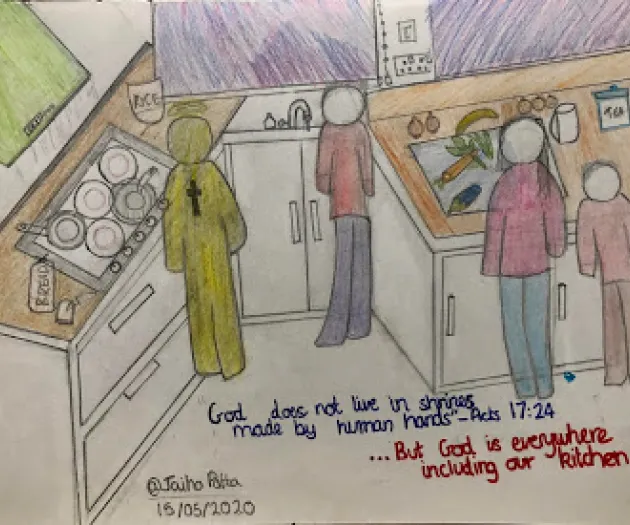 RICE
TEA
BREAD
"God does not live in shrines
made by human hands" - Acts 17:24
...But God is everywhere
including our kitchen
@Jaiho Patta
15/05/2020